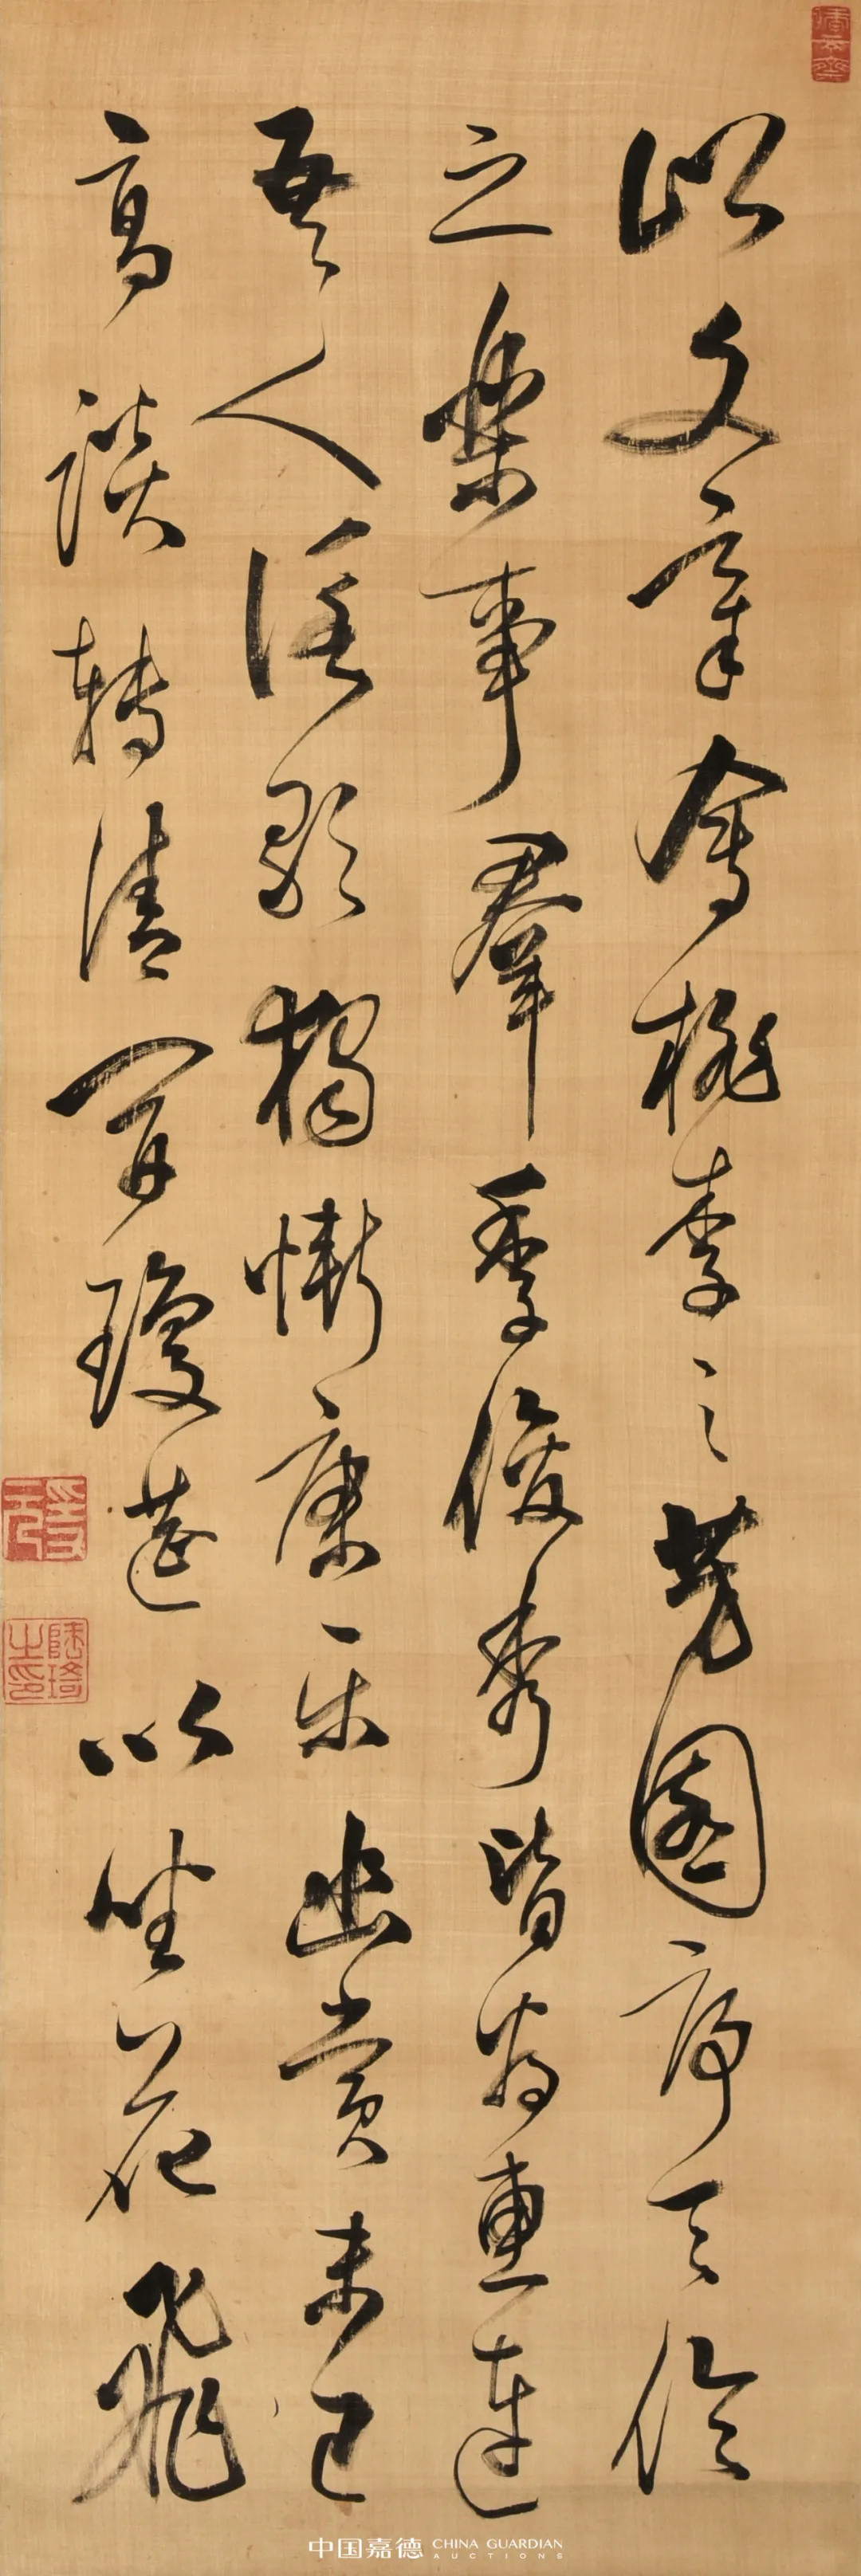 此文章會桃李之芳園序天倫
之樂事羣季俊秀皆為惠連
吾人詠歌獨慚康乐幽賞未已
高談轉清開瓊莚以坐花飛
陸琦之印
中国嘉德 CHINA GUARDIAN
AUCTIONS